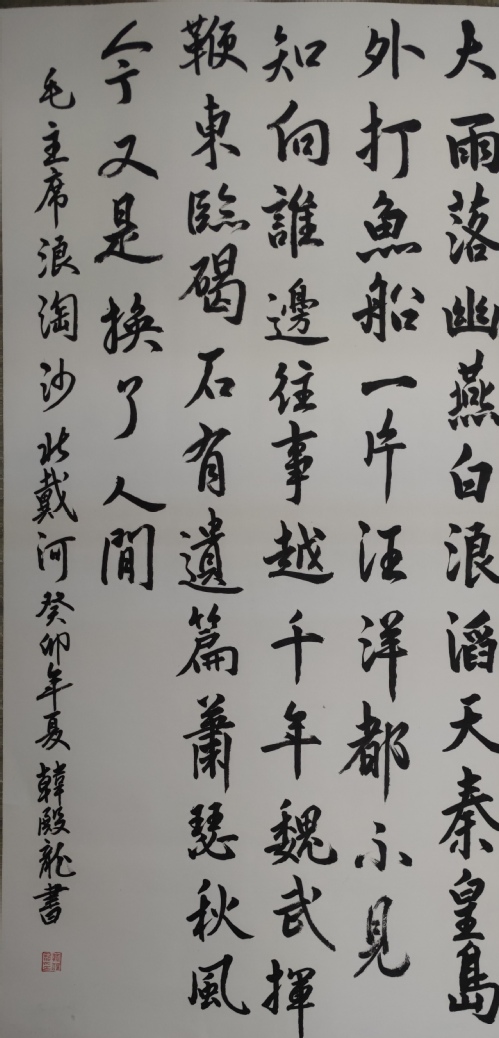 大雨落幽燕白浪滔天秦皇島
外打魚船一片汪洋都不見
知向誰邊往事越千年魏武揮
鞭東臨碣石有遺篇蕭瑟秋風
今又是換了人間
毛主席浪淘沙北戴河癸卯年夏韓殿龍書